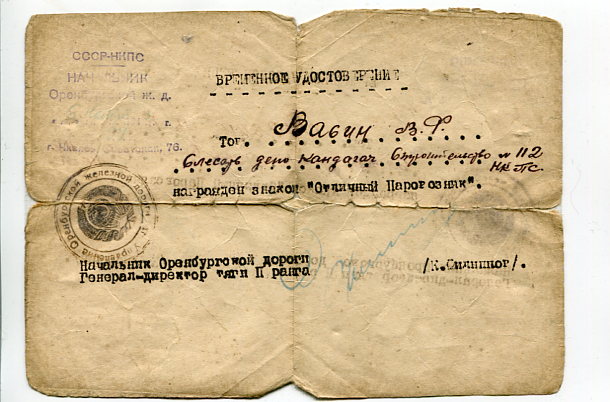 СССР-НКПС
НАЧАЛЬНИК
Оренбургской ж. д.
г.
г. Чкалов, Советская, 76.
ВРЕМЕННОЕ УДОСТОВЕРЕНИЕ
Тов. Бабин В.Ф.
Слесарь депо Кандагач Строительство № 112
НКПС
награжден знаком "Отличный Паровозник".
Управление Оренбургской железной дороги
Начальник Оренбургской дороги
Генерал-директор тяги П ранга
/К.Синицов/.